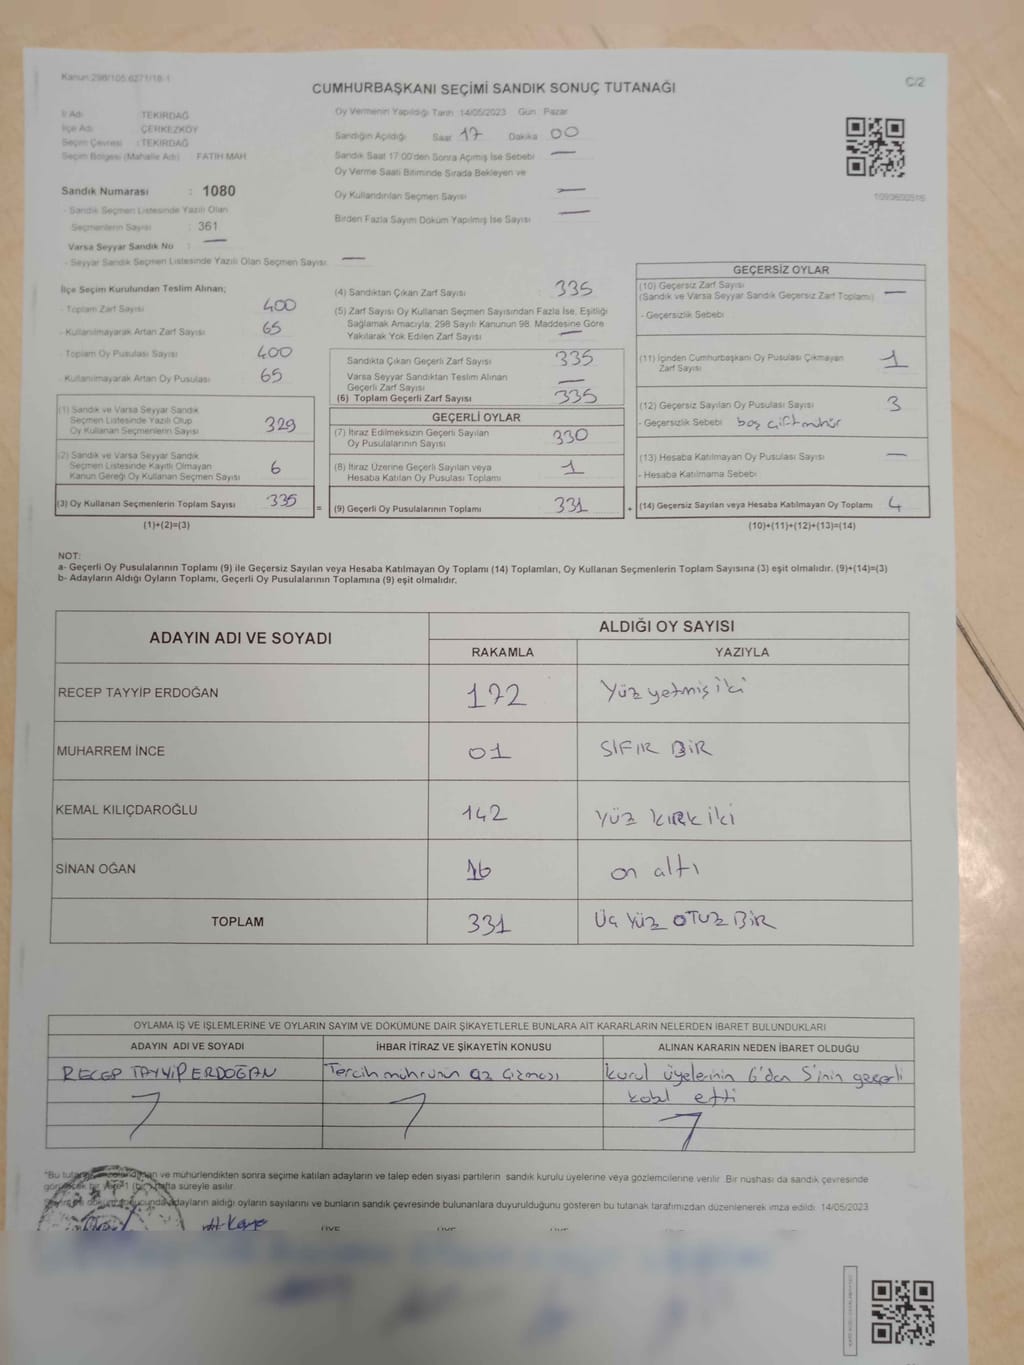 Kanun:298/105.6271/18-1
C/2
CUMHURBAŞKANI SEÇİMİ SANDIK SONUÇ TUTANAĞI
İl Adı : TEKİRDAĞ
İlçe Adı : ÇERKEZKÖY
Seçim Çevresi : TEKİRDAĞ
Seçim Bölgesi (Mahalle Adı) : FATİH MAH
Sandık Numarası : 1080
- Sandık Seçmen Listesinde Yazılı Olan
Seçmenlerin Sayısı : 361
Varsa Seyyar Sandık No : —
- Seyyar Sandık Seçmen Listesinde Yazılı Olan Seçmen Sayısı: —
Oy Vermenin Yapıldığı Tarih 14/05/2023 Gün: Pazar
Sandığın Açıldığı Saat 17 Dakika 00
Sandık Saat 17:00'den Sonra Açımış İse Sebebi —
Oy Verme Saati Bitiminde Sırada Bekleyen ve
Oy Kullandırılan Seçmen Sayısı —
Birden Fazla Sayım Döküm Yapılmış İse Sayısı —
İlçe Seçim Kurulundan Teslim Alınan;
- Toplam Zarf Sayısı 400
- Kullanılmayarak Artan Zarf Sayısı 65
- Toplam Oy Pusulası Sayısı 400
- Kullanılmayarak Artan Oy Pusulası 65
(1) Sandık ve Varsa Seyyar Sandık
Seçmen Listesinde Yazılı Olup
Oy Kullanan Seçmenlerin Sayısı 329
(2) Sandık ve Varsa Seyyar Sandık
Seçmen Listesinde Kayıtlı Olmayan
Kanun Gereği Oy Kullanan Seçmen Sayısı 6
(3) Oy Kullanan Seçmenlerin Toplam Sayısı 335
(1)+(2)=(3)
=
(4) Sandıktan Çıkan Zarf Sayısı 335
(5) Zarf Sayısı Oy Kullanan Seçmen Sayısından Fazla İse, Eşitliği
Sağlamak Amacıyla; 298 Sayılı Kanunun 98. Maddesine Göre
Yakılarak Yok Edilen Zarf Sayısı —
Sandıkta Çıkan Geçerli Zarf Sayısı 335
Varsa Seyyar Sandıktan Teslim Alınan
Geçerli Zarf Sayısı —
(6) Toplam Geçerli Zarf Sayısı 335
GEÇERLİ OYLAR
(7) İtiraz Edilmeksizin Geçerli Sayılan
Oy Pusulalarının Sayısı 330
(8) İtiraz Üzerine Geçerli Sayılan veya
Hesaba Katılan Oy Pusulası Toplamı 1
(9) Geçerli Oy Pusulalarının Toplamı 331
+
GEÇERSİZ OYLAR
(10) Geçersiz Zarf Sayısı
(Sandık ve Varsa Seyyar Sandık Geçersiz Zarf Toplamı) —
- Geçersizlik Sebebi :
(11) İçinden Cumhurbaşkanı Oy Pusulası Çıkmayan
Zarf Sayısı 1
(12) Geçersiz Sayılan Oy Pusulası Sayısı 3
- Geçersizlik Sebebi : boş çift mühür
(13) Hesaba Katılmayan Oy Pusulası Sayısı —
- Hesaba Katılmama Sebebi :
(14) Geçersiz Sayılan veya Hesaba Katılmayan Oy Toplamı 4
(10)+(11)+(12)+(13)=(14)
NOT:
a- Geçerli Oy Pusulalarının Toplamı (9) ile Geçersiz Sayılan veya Hesaba Katılmayan Oy Toplamı (14) Toplamları, Oy Kullanan Seçmenlerin Toplam Sayısına (3) eşit olmalıdır. (9)+(14)=(3)
b- Adayların Aldığı Oyların Toplamı, Geçerli Oy Pusulalarının Toplamına (9) eşit olmalıdır.
ADAYIN ADI VE SOYADI ALDIĞI OY SAYISI
RAKAMLA YAZIYLA
RECEP TAYYİP ERDOĞAN 172 Yüz yetmiş iki
MUHARREM İNCE 01 SIFIR BİR
KEMAL KILIÇDAROĞLU 142 YÜZ KIRK iki
SİNAN OĞAN 16 on altı
TOPLAM 331 ÜÇ YÜZ OTUZ BİR
OYLAMA İŞ VE İŞLEMLERİNE VE OYLARIN SAYIM VE DÖKÜMÜNE DAİR ŞİKAYETLERLE BUNLARA AİT KARARLARIN NELERDEN İBARET BULUNDUKLARI
ADAYIN ADI VE SOYADI İHBAR İTİRAZ VE ŞİKAYETİN KONUSU ALINAN KARARIN NEDEN İBARET OLDUĞU
RECEP TAYYİP ERDOĞAN Tercih mührünün az çizmesi kurul üyelerinin 6'dan 5'inin geçerli
kabul etti
ve mühürlendikten sonra seçime katılan adayların ve talep eden siyasi partilerin sandık kurulu üyelerine veya gözlemcilerine verilir. Bir nüshası da sandık çevresinde
süreyle asılır.
adayların aldığı oyların sayılarını ve bunların sandık çevresinde bulunanlara duyurulduğunu gösteren bu tutanak tarafımızdan düzenlenerek imza edildi. 14/05/2023